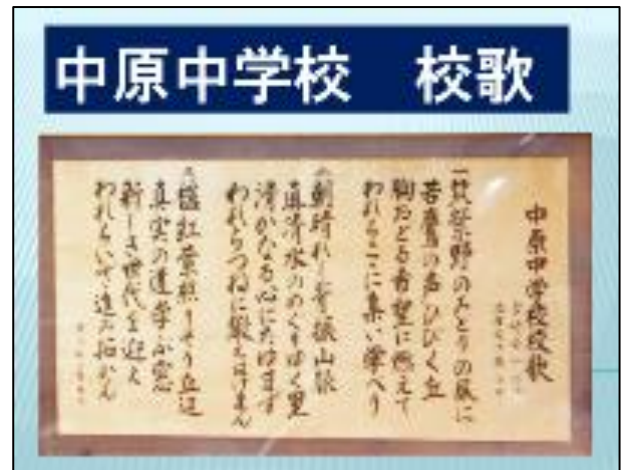 中原中学校　校歌
中原中学校校歌
一 筑紫野のみどりの風に
若鷹の声ひびく丘
胸おどる希望に燃えて
われらここに集い学べり
朝晴れし脊振山脈
真清水のめぐりゆく里
清かなる心にたゆまず
われらつねに鍛えはげまん
櫨紅葉照りそう丘辺
真実の道学ぶ窓
新しき世代を迎え
われらいざ進み拓かん